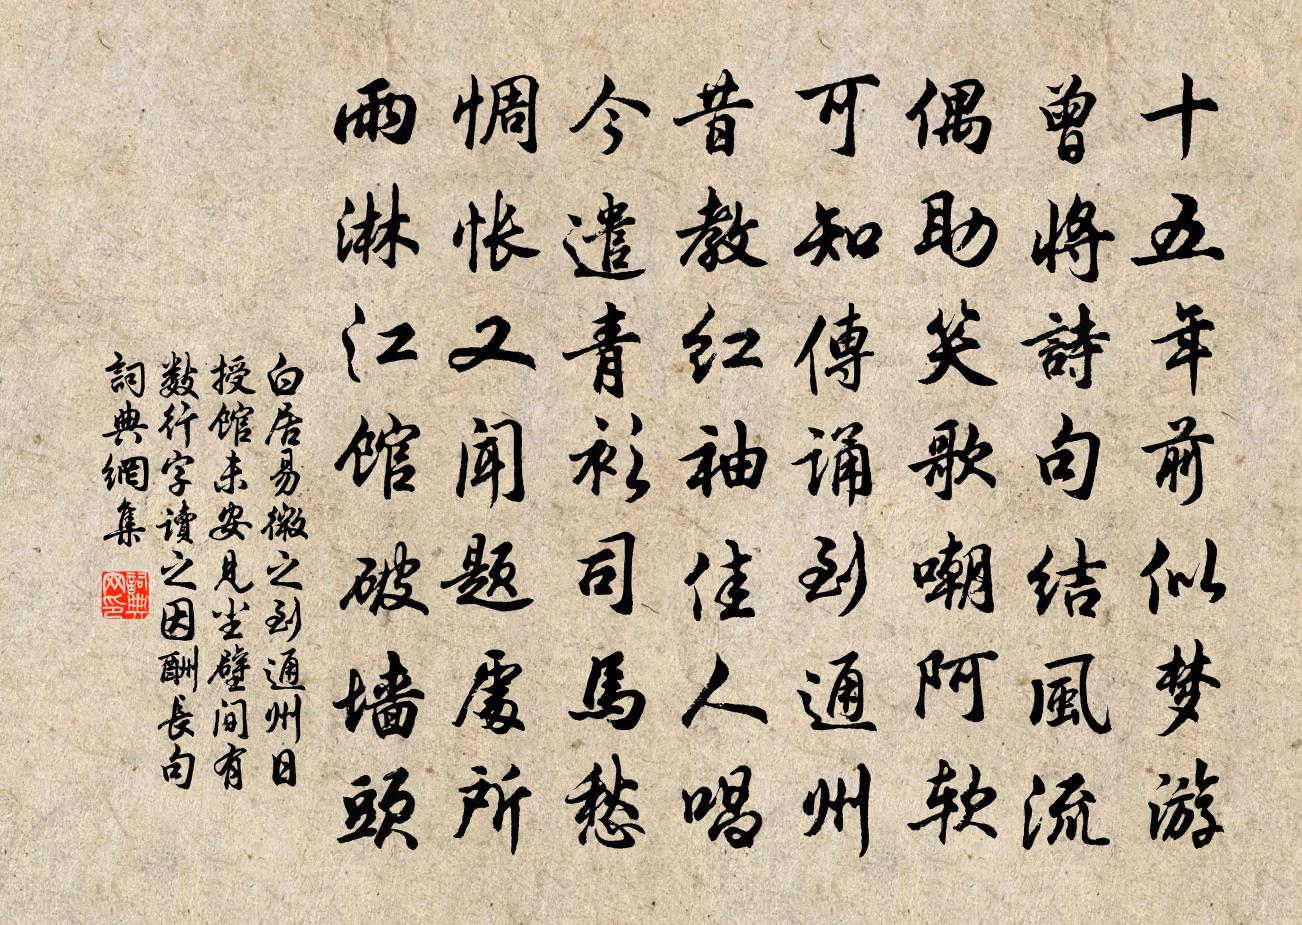 十五年前似梦游
曾將詩句结風流
偶助笑歌嘲阿软
可知傳诵到通州
昔教红袖佳人唱
今遣青衫司馬愁
惆怅又闻题處所
雨淋江馆破墙頭
白居易微之到通州日
授馆未安見尘壁间有
数行字讀之因酬長句
詞典網集
詞典
网印